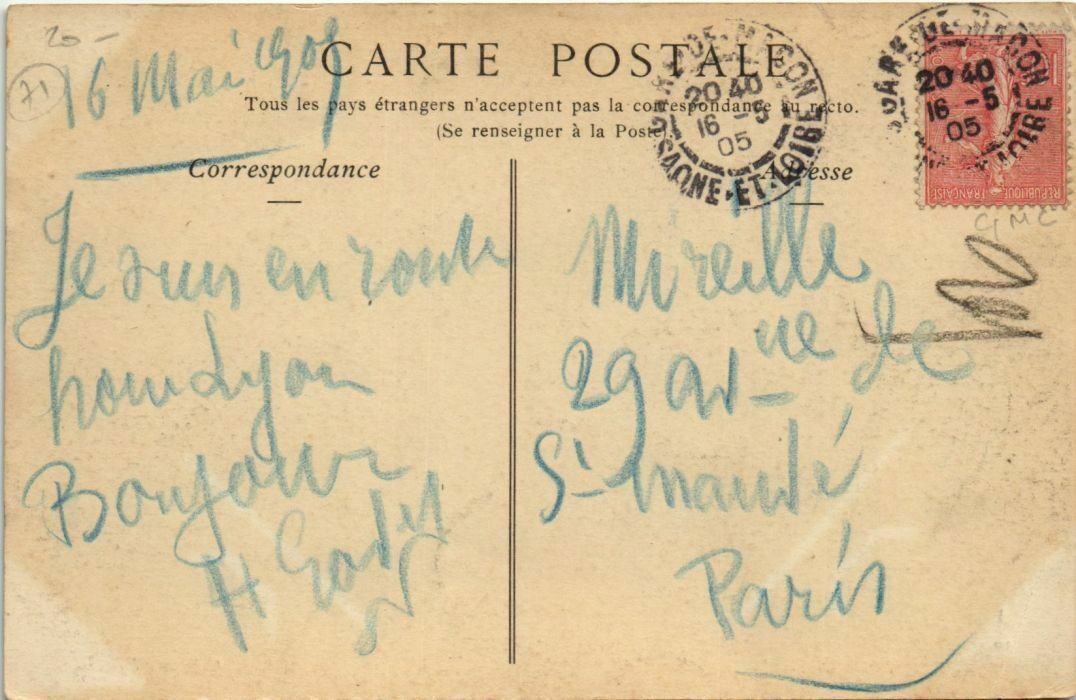 20 -
71
16 Mai 1905
CARTE POSTALE
Tous les pays étrangers n'acceptent pas la correspondance au recto.
(Se renseigner à la Poste).
GARE DE MACON
20 40
16 - 5
05
SAONE-ET-LOIRE
GARE DE MACON
20 40
16 - 5
05
LOIRE
REPUBLIQUE FRANÇAISE
GMC
Correspondance
Je suis en route
pour Lyon
Bonjour
H Godet
Adresse
Mireille
29 Av-nue de
St mandé
Paris